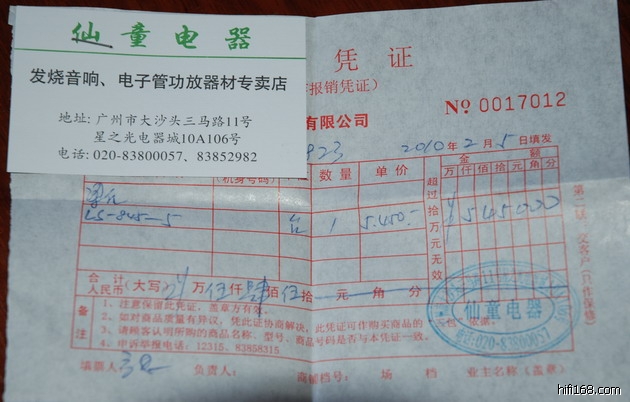 仙童电器
发烧音响、电子管功放器材专卖店
地址: 广州市大沙头三马路11号
星之光电器城10A106号
电话: 020-83800057、83852982
凭证
报销凭证）
No 0017012
有限公司
823 2010年2月5日填发
（机身号码） 数量 单价 超过拾万元无效 金额
万仟佰拾元角分
LS-845-5 台 1 5.450.- ¥ 5 4 5 0 0 0
合计人民币 （大写） 万伍仟肆佰伍拾 元 角 分
第二联 交客户（只作保修）
备注
1、注意保留此凭证，盖章方有
2、如对商品质量有异议，凭此证协商解决，此凭证可作购买商品的 包 依据。
3、请顾客认明所购的商品名称、型号、商品号码是否与本凭证一致。
4、申诉举报电话：12315、83858315
仙童电器
020-83800057
填票人 负责人： 商铺档号： 场 档 业主名称（盖章）
hifi168.com